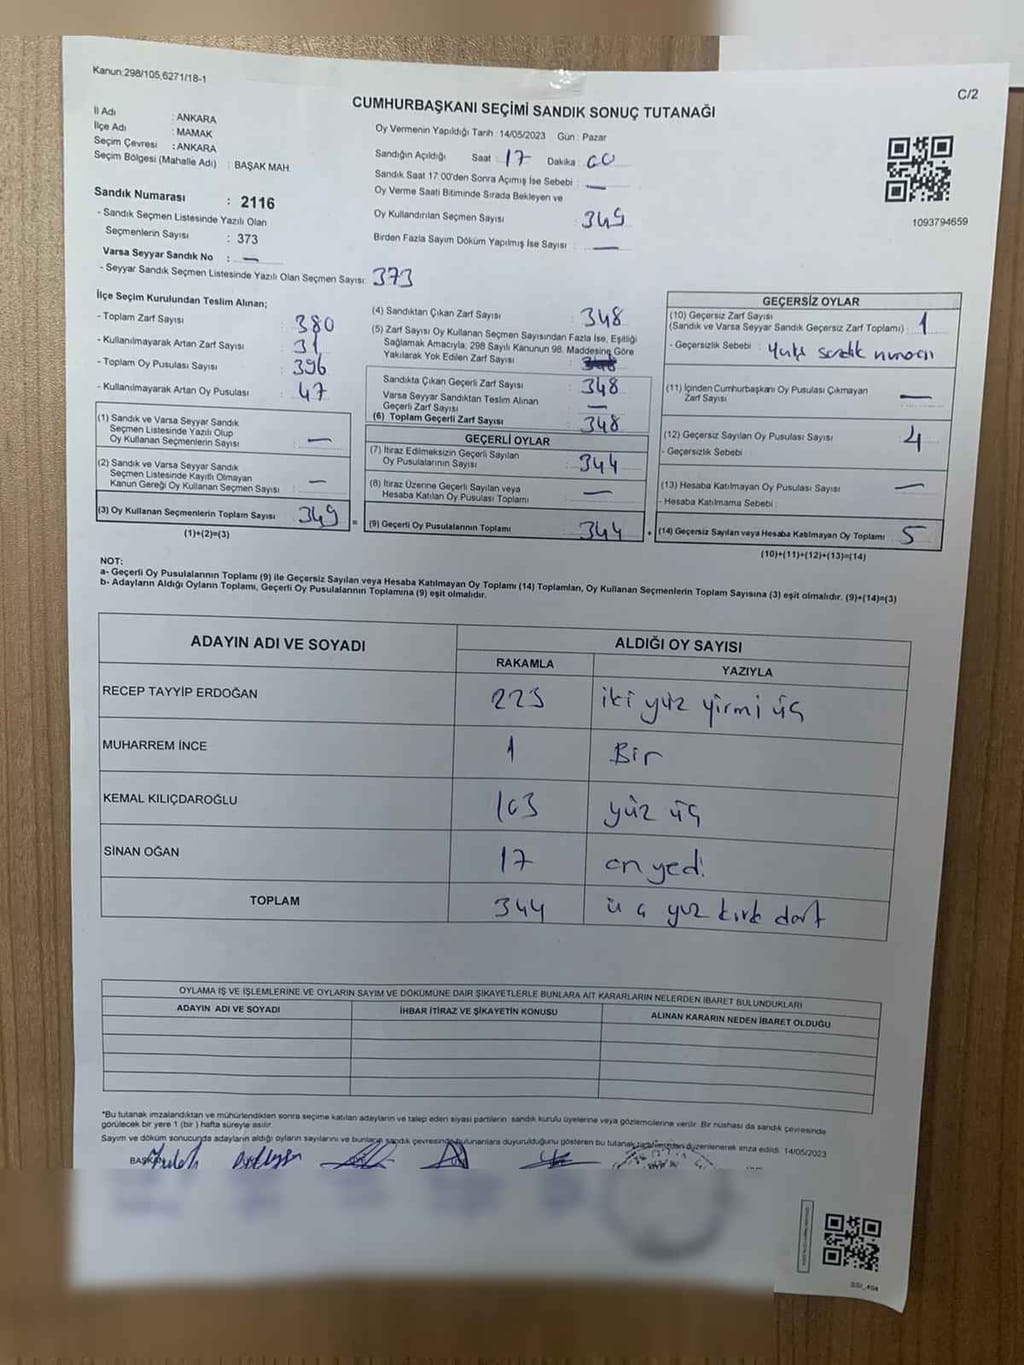 Kanun:298/105,6271/18-1
C/2
CUMHURBAŞKANI SEÇİMİ SANDIK SONUÇ TUTANAĞI
İl Adı : ANKARA
İlçe Adı : MAMAK
Seçim Çevresi : ANKARA
Seçim Bölgesi (Mahalle Adı) : BAŞAK MAH.
Oy Vermenin Yapıldığı Tarih : 14/05/2023 Gün : Pazar
Sandığın Açıldığı Saat 17 Dakika : 00
Sandık Saat 17:00'den Sonra Açımış İse Sebebi : —
Oy Verme Saati Bitiminde Sırada Bekleyen ve
Oy Kullandırılan Seçmen Sayısı : 349
Birden Fazla Sayım Döküm Yapılmış İse Sayısı : —
1093794659
Sandık Numarası : 2116
- Sandık Seçmen Listesinde Yazılı Olan
Seçmenlerin Sayısı : 373
Varsa Seyyar Sandık No : —
- Seyyar Sandık Seçmen Listesinde Yazılı Olan Seçmen Sayısı: 373
İlçe Seçim Kurulundan Teslim Alınan;
- Toplam Zarf Sayısı : 380
- Kullanılmayarak Artan Zarf Sayısı : 31
- Toplam Oy Pusulası Sayısı : 396
- Kullanılmayarak Artan Oy Pusulası : 47
(1) Sandık ve Varsa Seyyar Sandık
Seçmen Listesinde Yazılı Olup
Oy Kullanan Seçmenlerin Sayısı : —
(2) Sandık ve Varsa Seyyar Sandık
Seçmen Listesinde Kayıtlı Olmayan
Kanun Gereği Oy Kullanan Seçmen Sayısı : —
(3) Oy Kullanan Seçmenlerin Toplam Sayısı : 349
(1)+(2)=(3)
(4) Sandıktan Çıkan Zarf Sayısı : 348
(5) Zarf Sayısı Oy Kullanan Seçmen Sayısından Fazla İse, Eşitliği
Sağlamak Amacıyla, 298 Sayılı Kanunun 98. Maddesine Göre
Yakılarak Yok Edilen Zarf Sayısı :
Sandıkta Çıkan Geçerli Zarf Sayısı : 348
Varsa Seyyar Sandıktan Teslim Alınan
Geçerli Zarf Sayısı : —
(6) Toplam Geçerli Zarf Sayısı : 348
GEÇERLİ OYLAR
(7) İtiraz Edilmeksizin Geçerli Sayılan
Oy Pusulalarının Sayısı : 344
(8) İtiraz Üzerine Geçerli Sayılan veya
Hesaba Katılan Oy Pusulası Toplamı : —
(9) Geçerli Oy Pusulalarının Toplamı : 344
GEÇERSİZ OYLAR
(10) Geçersiz Zarf Sayısı
(Sandık ve Varsa Seyyar Sandık Geçersiz Zarf Toplamı) : 1
- Geçersizlik Sebebi :
(11) İçinden Cumhurbaşkanı Oy Pusulası Çıkmayan
Zarf Sayısı : —
(12) Geçersiz Sayılan Oy Pusulası Sayısı : 4
- Geçersizlik Sebebi
(13) Hesaba Katılmayan Oy Pusulası Sayısı : —
- Hesaba Katılmama Sebebi :
(14) Geçersiz Sayılan veya Hesaba Katılmayan Oy Toplamı : 5
(10)+(11)+(12)+(13)=(14)
NOT:
a- Geçerli Oy Pusulalarının Toplamı (9) ile Geçersiz Sayılan veya Hesaba Katılmayan Oy Toplamı (14) Toplamları, Oy Kullanan Seçmenlerin Toplam Sayısına (3) eşit olmalıdır. (9)+(14)=(3)
b- Adayların Aldığı Oyların Toplamı, Geçerli Oy Pusulalarının Toplamına (9) eşit olmalıdır.
ADAYIN ADI VE SOYADI ALDIĞI OY SAYISI
RAKAMLA YAZIYLA
RECEP TAYYİP ERDOĞAN 223 iki yüz yirmi üç
MUHARREM İNCE 1 Bir
KEMAL KILIÇDAROĞLU 103 yüz üç
SİNAN OĞAN 17 on yedi
TOPLAM 344 üç yuz kırk dört
OYLAMA İŞ VE İŞLEMLERİNE VE OYLARIN SAYIM VE DÖKÜMÜNE DAİR ŞİKAYETLERLE BUNLARA AİT KARARLARIN NELERDEN İBARET BULUNDUKLARI
ADAYIN ADI VE SOYADI İHBAR İTİRAZ VE ŞİKAYETİN KONUSU ALINAN KARARIN NEDEN İBARET OLDUĞU
*Bu tutanak imzalandıktan ve mühürlendikten sonra seçime katılan adayların ve talep eden siyasi partilerin sandık kurulu üyelerine veya gözlemcilerine verilir. Bir nüshası da sandık çevresinde
görülecek bir yere 1 (bir) hafta süreyle asılır.
Sayım ve döküm sonucunda adayların aldığı oyların sayılarını ve bunların sandık çevresinde bulunanlara duyurulduğunu gösteren bu tutanak tarafımızdan düzenlenerek imza edildi. 14/05/2023